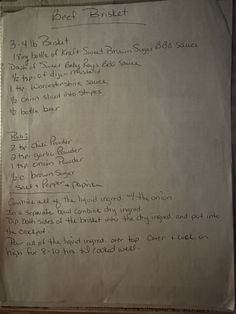 Beef Brisket
3-4 lb Brisket
1 Reg bottle of Kraft Sweet Brown Sugar BBQ sauce
Dash of Sweet Baby Rays BBQ sauce
½ tsp. of dry mustard
1 tsp Worcestershire sauce
½ onion sliced into stripes
½ bottle beer
Rub:
2 tsp Chili Powder
2 tsp garlic Powder
1 tsp onion Powder
½ c brown Sugar
Salt + Pepper + paprika
Combine all of the liquid ingred. w/ the onion
In a separate bowl combine dry ingred.
Dip both sides of the brisket into the dry ingred. and put into
the crockpot.
Pour all of the liquid ingred. over top. Cover + cook on
high for 8-10 hrs. til cooked well.